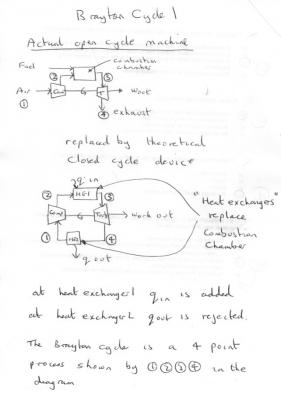 Brayton Cycle 1
Actual open cycle machine
Fuel
combustion
chamber
②
③
Air
Com
G
T
Work
①
④
exhaust
replaced by theoretical
Closed cycle device
q in
②
HE1
③
Comp
G
Turb
Work out
①
HE2
④
q out
"Heat exchangers"
replace
Combustion
Chamber
at heat exchanger 1 qin is added
at heat exchanger 2 qout is rejected.
The Brayton cycle is a 4 point
process shown by ①②③④ in the
diagram